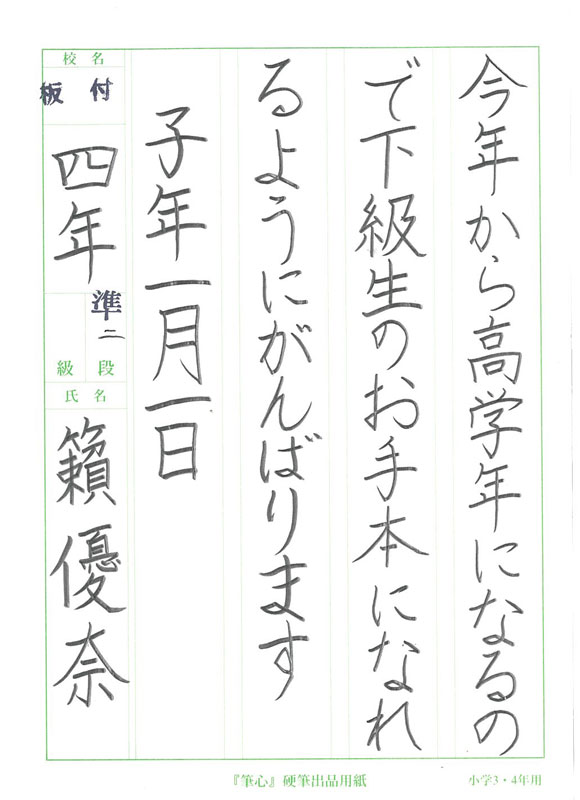 今年から高学年になるの
で下級生のお手本になれ
るようにがんばります
子年一月一日
校名
板付
四年
準二
級段
氏名
籟優奈
『筆心』硬筆出品用紙
小学3・4年用